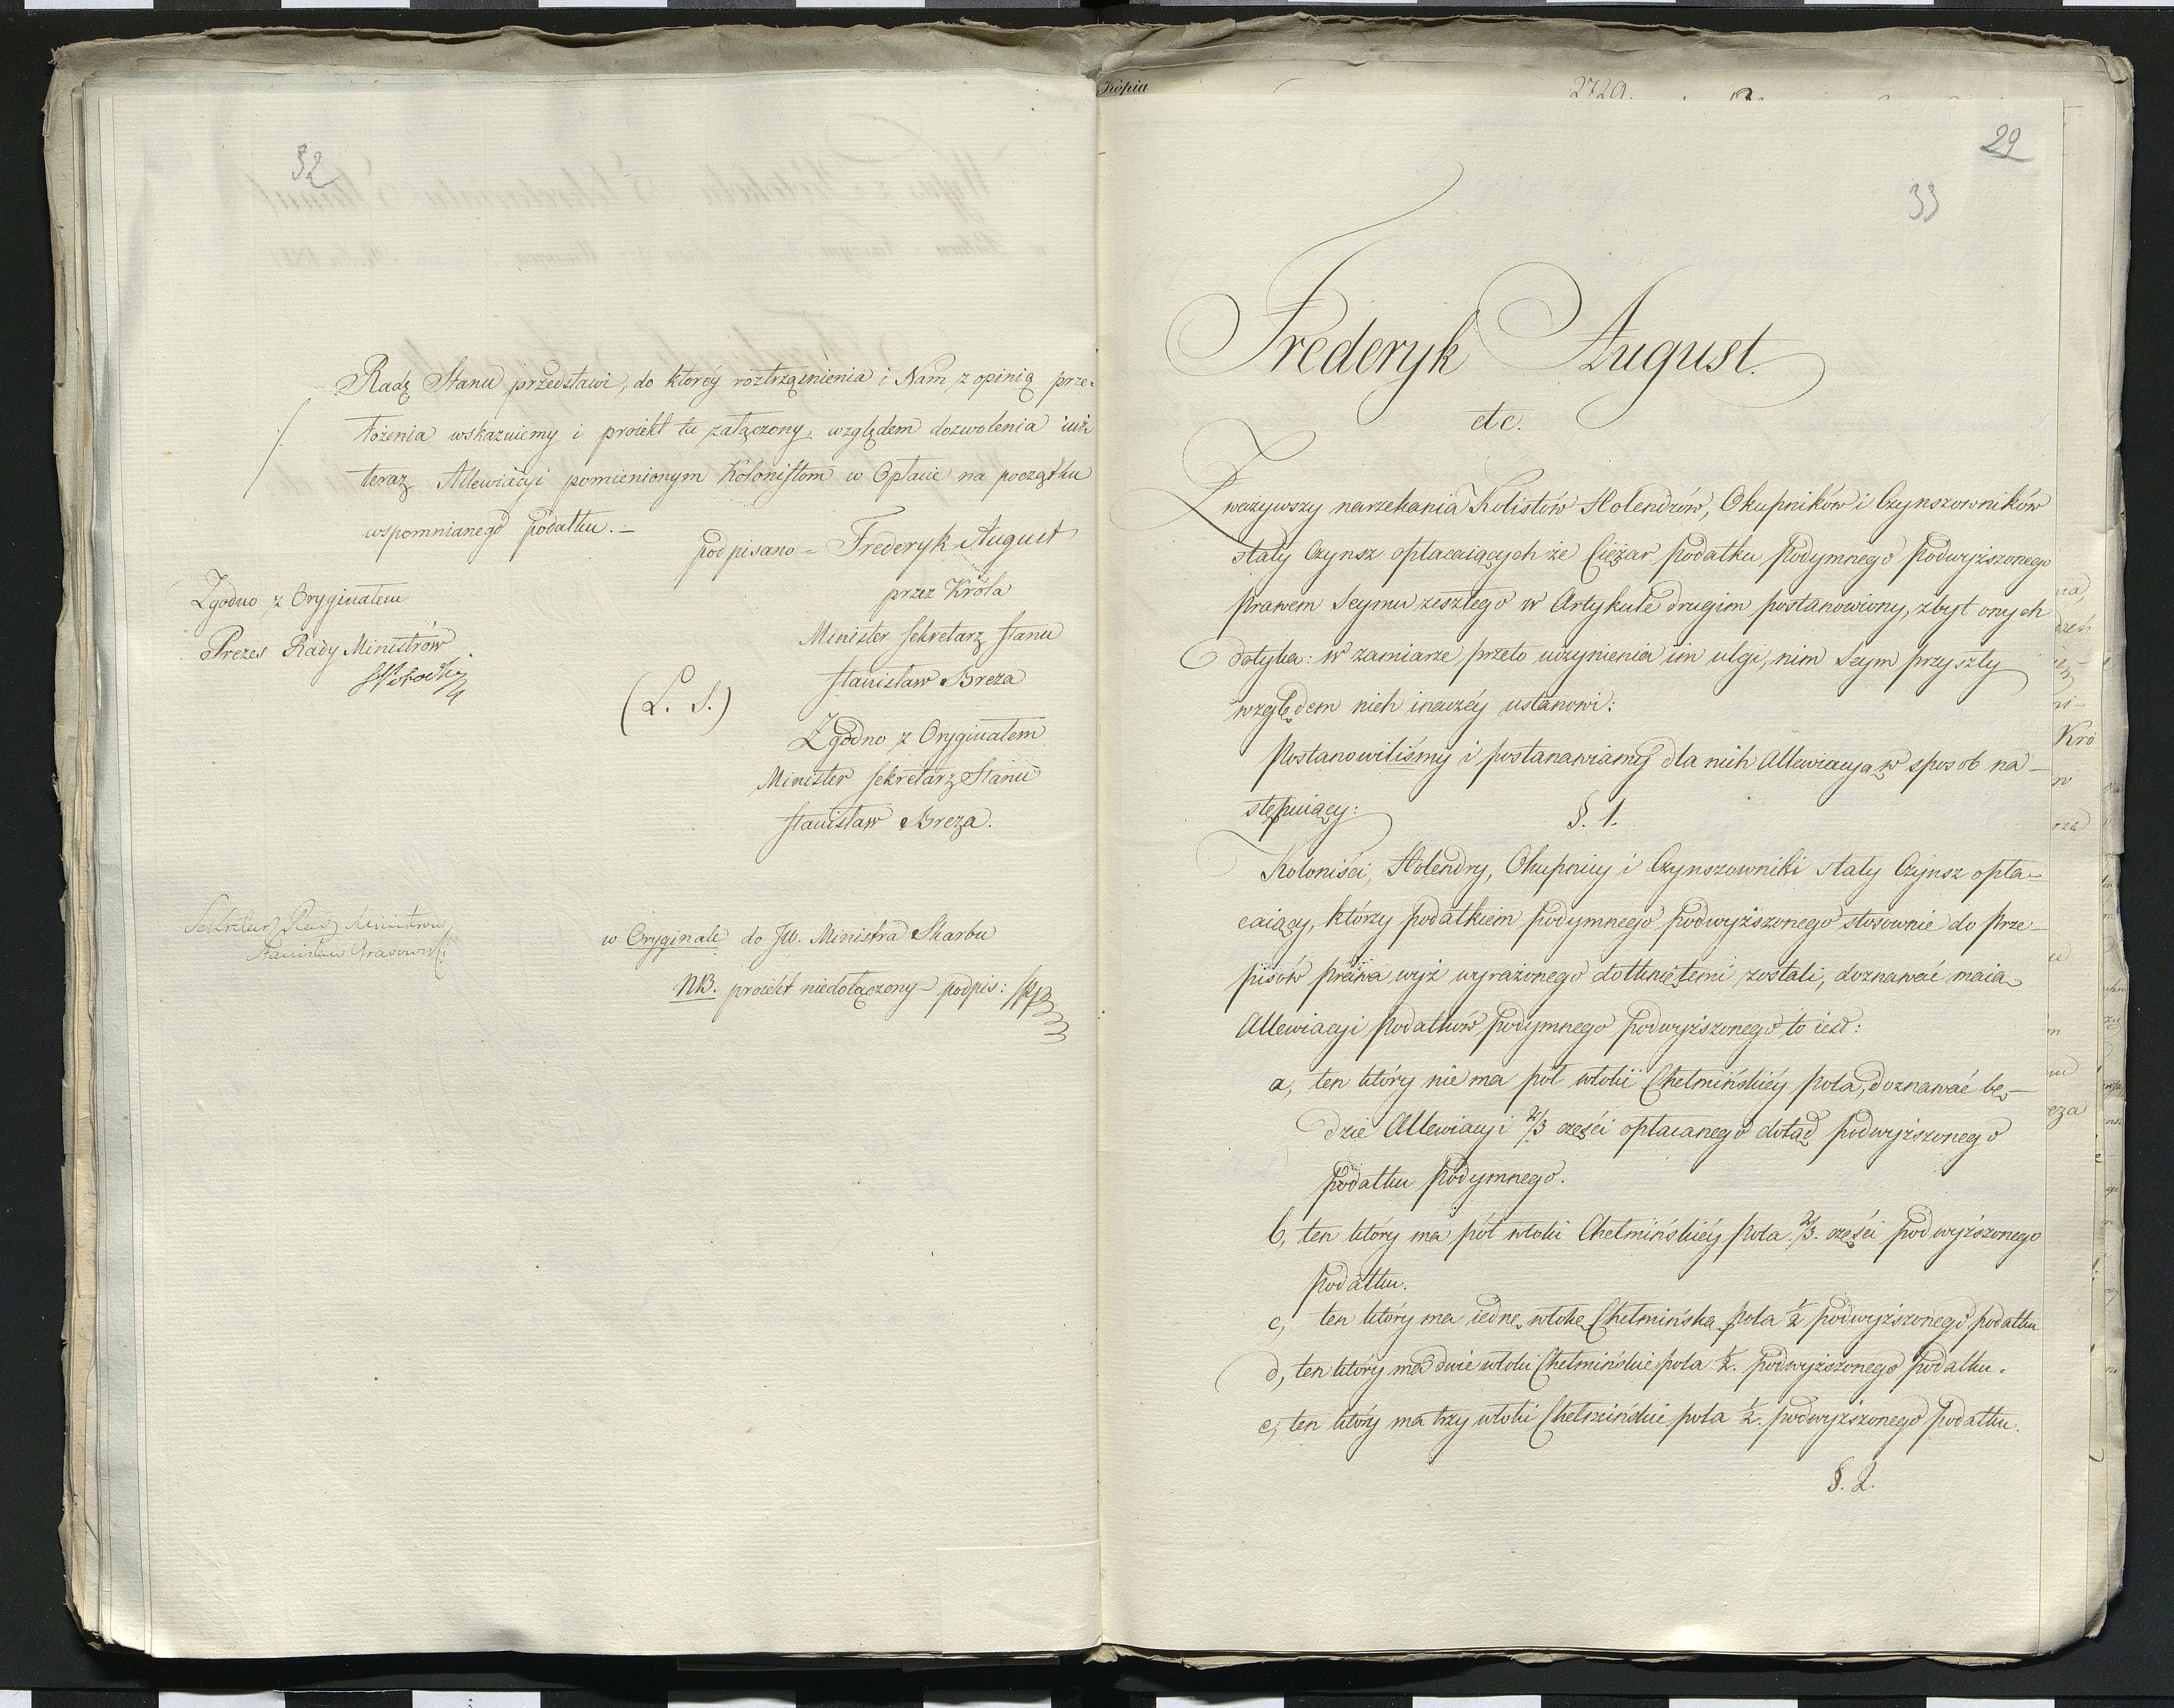 32
Radę Stanu przedstawi, do któréy roztrząśnienia i Nam z opinią prze=
łożenia wskazuiemy i proiekt tu załączony, względem dozwolenia iuż
teraz Allewiacyi pomienionym Kolonistom w Opłacie na początku
wspomnianego podatku. –
podpisano = Frederyk August
przez Króla
Minister Sekretarz Stanu
Stanisław Breza
(L. S.)
Zgodno z Oryginałem
Minister Sekretarz Stanu
Stanisław Breza.
Zgodno z Oryginałem
Prezes Rady Ministrów
Sekretarz Rady Ministrów
Stanisław Grabowski
w Oryginale do JW. Ministra Skarbu
NB. proiekt niedołączony – podpis:
Kopia
2729.
29
33
Frederyk August.
etc.
Zważywszy narzekania Kolistów Holendrów, Okupników i Czynszowników
stały Czynsz opłacaiących że Ciężar podatku podymnego podwyższonego
prawem Seymu zeszłego w Artykule drugim postanowiony, zbyt onych
dotyka: w zamiarze przeto uczynienia im ulgi, nim Seym przyszły
względem nich inaczéy ustanowi:
Postanowiliśmy i postanawiamy dla nich Allewiacyą w sposob na–
stępuiący:
§. 1.
Koloniści, Holendry, Okupnicy i Czynszowniki stały Czynsz opła–
caiący, którzy podatkiem podymnego podwyższonego stosownie do prze–
pisów prawa wyż wyrażonego dotkniętemi zostali, doznawać maią
Allewiacyi podatków podymnego podwyższonego to iest:
a, ten który nie ma pół włoki Chełmińskiéy pola, doznawać bę–
dzie Allewiacyi 2/3 części opłacanego dotąd podwyższonego
podatku podymnego.
b, ten który ma pół włoki Chełmińskiéy pola 2/3. części podwyższonego
podatku.
c, ten który ma iednę włokę Chełmińską pola 1/2 podwyższonego podatku
d, ten który ma dwie włoki Chełmińskie pola 1/2. podwyższonego podatku.
e, ten który ma trzy włoki Chełmińskie pola 1/2. podwyższonego podatku.
§. 2.